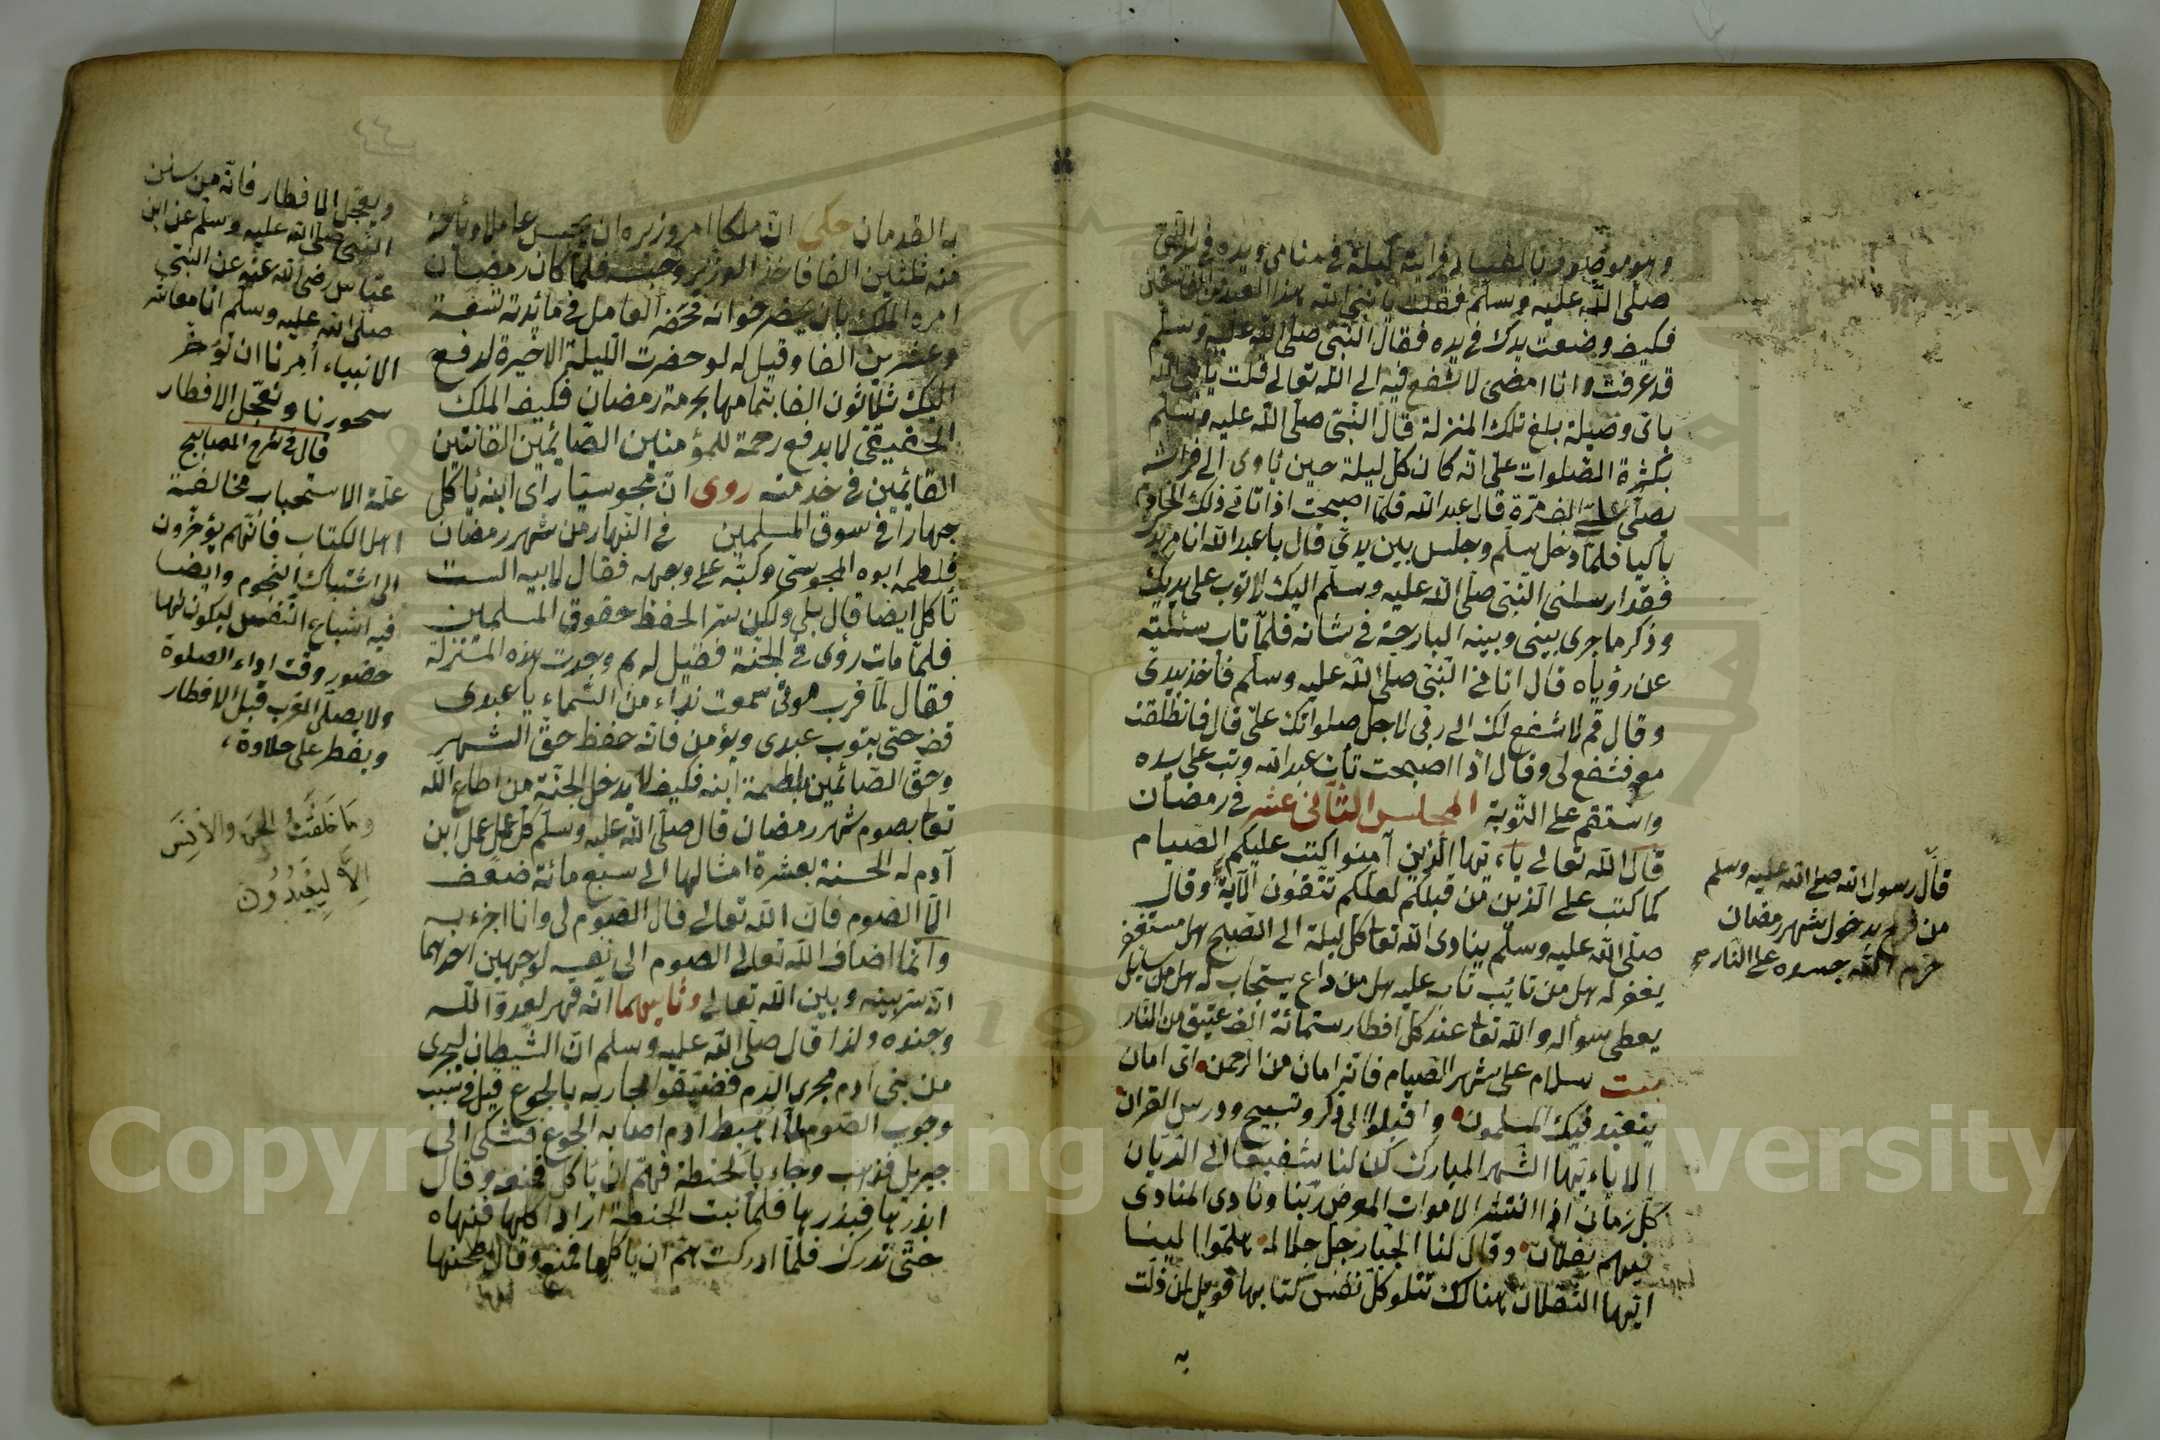 وهو موصوف بالفساد فرايته ليلة في منامي ويده في يد النبي
صلى الله عليه وسلم فقلت يا نبي الله هذا العبد من الفاسقين
فكيف وضعت يدك في يده فقال النبي صلى الله عليه وسلم
قد عرفت وانا امضى لا شفع فيه الى الله تعالى قلت يا نبي الله
باى وضيلة بلغ تلك المنزلة قال النبي صلى الله عليه وسلم
بكثرة الصلوات على انه كان كل ليلة حين ياوى الى فراشه
يصلى على الف مرة قال عبد الله فلما اصبحت اذ اتانى ذلك
باكيا فلما دخل سلم وجلس بين يدى قال يا عبد الله انا مريد
فقد ارسلنى النبي صلى الله عليه وسلم اليك لاتوب على يديك
وذكر ما جرى بينى وبينه البارحة فى شانه فلما تاب سئلته
عن رؤياه قال اتانى النبي صلى الله عليه وسلم فاخذ بيدى
وقال قم لاشفع لك الى ربى لاجل صلواتك على قال فانطلقت
معه فشفع لى وقال اذا اصبحت تات عبد الله وتب على يده
واستقم على التوبة المجلس الثانى عشر فى رمضان
قال الله تعالى ياءيها الذين آمنوا كتب عليكم الصيام
كما كتب على الذين من قبلكم لعلكم تتقون الآية وقال
صلى الله عليه وسلم ينادى الله تعا كل ليلة الى الصبح هل مستغفر
يغفر له هل من تائب تاب عليه هل من داع يستجاب له هل من سايل
يعطى سواله والله تعا عند كل افطار ستمائة الف عتيق من النار
بيت سلام على شهر الصيام فانه امان من الرحمن اى امان
يتعبد فيك المسلمون واقبلوا الى ذكر وتسبيح ودرس القران
الا ياءيها الشهر المبارك كن لنا شفيعا الى الديان
كل زمان اذا انتشر الاموات المعرض ربنا ونادى المنادى
فيهم بفلان وقال لنا الجبار جل جلاله هلموا الينا
ايها الثقلان هناك تتلو كل نفس كتابها فويل لمن ذلت
به
قال رسول الله صلى الله عليه وسلم
من فرح بدخول شهر رمضان
حرم الله جسده على النار
به القدمان حكى ان ملكا امر وزيره ان يحبس عاملا وياخذ
منه ثلثين الفا فاخذ الوزير وحبسه فلما كان رمضان
امره الملك بان يحضر خوانه فحضر العامل فى مائدته تسعة
وعشرين الفا وقيل له لو حضرت الليلة الاخيرة لدفع
اليك ثلاثون الفا بتمامها بحرمة رمضان فكيف الملك
الحقيقى لا يدفع رحمة للمؤمنين الصائمين القانتين
القائمين فى خدمته روى ان مجوسيا راى ابنه ياكل
جهارا فى سوق المسلمين فى النهار من شهر رمضان
فلطمه ابوه المجوسى وكبه على وجهه فقال لابيه الست
تاكل ايضا قال بلى ولكن سرا لحفظ حقوق المسلمين
فلما مات رؤى فى الجنة فقيل له بم وجدت هذه المنزلة
فقال لما قرب موتى سمعت نداء من السماء يا عبدى
قف حتى يتوب عبدى ويؤمن فانه حفظ حق الشهر
وحق الصائمين بلطمة ابنه فكيف لا يدخل الجنة من اطاع الله
تعا بصوم شهر رمضان قال صلى الله عليه وسلم كل عمل ابن
آدم له الحسنة بعشرة امثالها الى سبع مائة ضعف
الا الصوم فان الله تعالى قال الصوم لى وانا اجزء به
وانما اضاف الله تعالى الصوم الى نفسه لوجهين احدهما
انه سر بينه وبين الله تعالى وثانيهما انه قهر لعدو الله
وجنده ولذا قال صلى الله عليه وسلم ان الشيطان ليجرى
من بنى آدم مجرى الدم فضيقوا مجاريه بالجوع قيل فى سبب
وجوب الصوم لما اهبط ادم اصابه الجوع فشكى الى
جبريل فذهب وجاء بالحنطة فهم ان ياكل فمنعه وقال
ابذرها فبذرها فلما نبت الحنطة اراد اكلها فنهاه
حتى تدرك فلما ادركت هم ان ياكلها فمنعه وقال اطحنها
ويعجل الافطار فانه من سنن
النبى صلى الله عليه وسلم عن ابن
عباس رضى الله عنه عن النبى
صلى الله عليه وسلم انا معاشر
الانبياء أمرنا ان نؤخر
سحورنا ونعجل الافطار
قال فى شرح المصابيح
علة الاستحباب مخالفة
اهل الكتاب فانهم يؤخرون
الى اشتباك النجوم وايضا
فيه اشباع النفس ليكون لها
حضور وقت اداء الصلوة
ولا يصلى المغرب قبل الافطار
ويفطر على حلاوة
وَمَا خَلَقْتُ الجن والأنِسَ
إِلاَّ لِيَعْبُدُون
Copyright © King Saud University